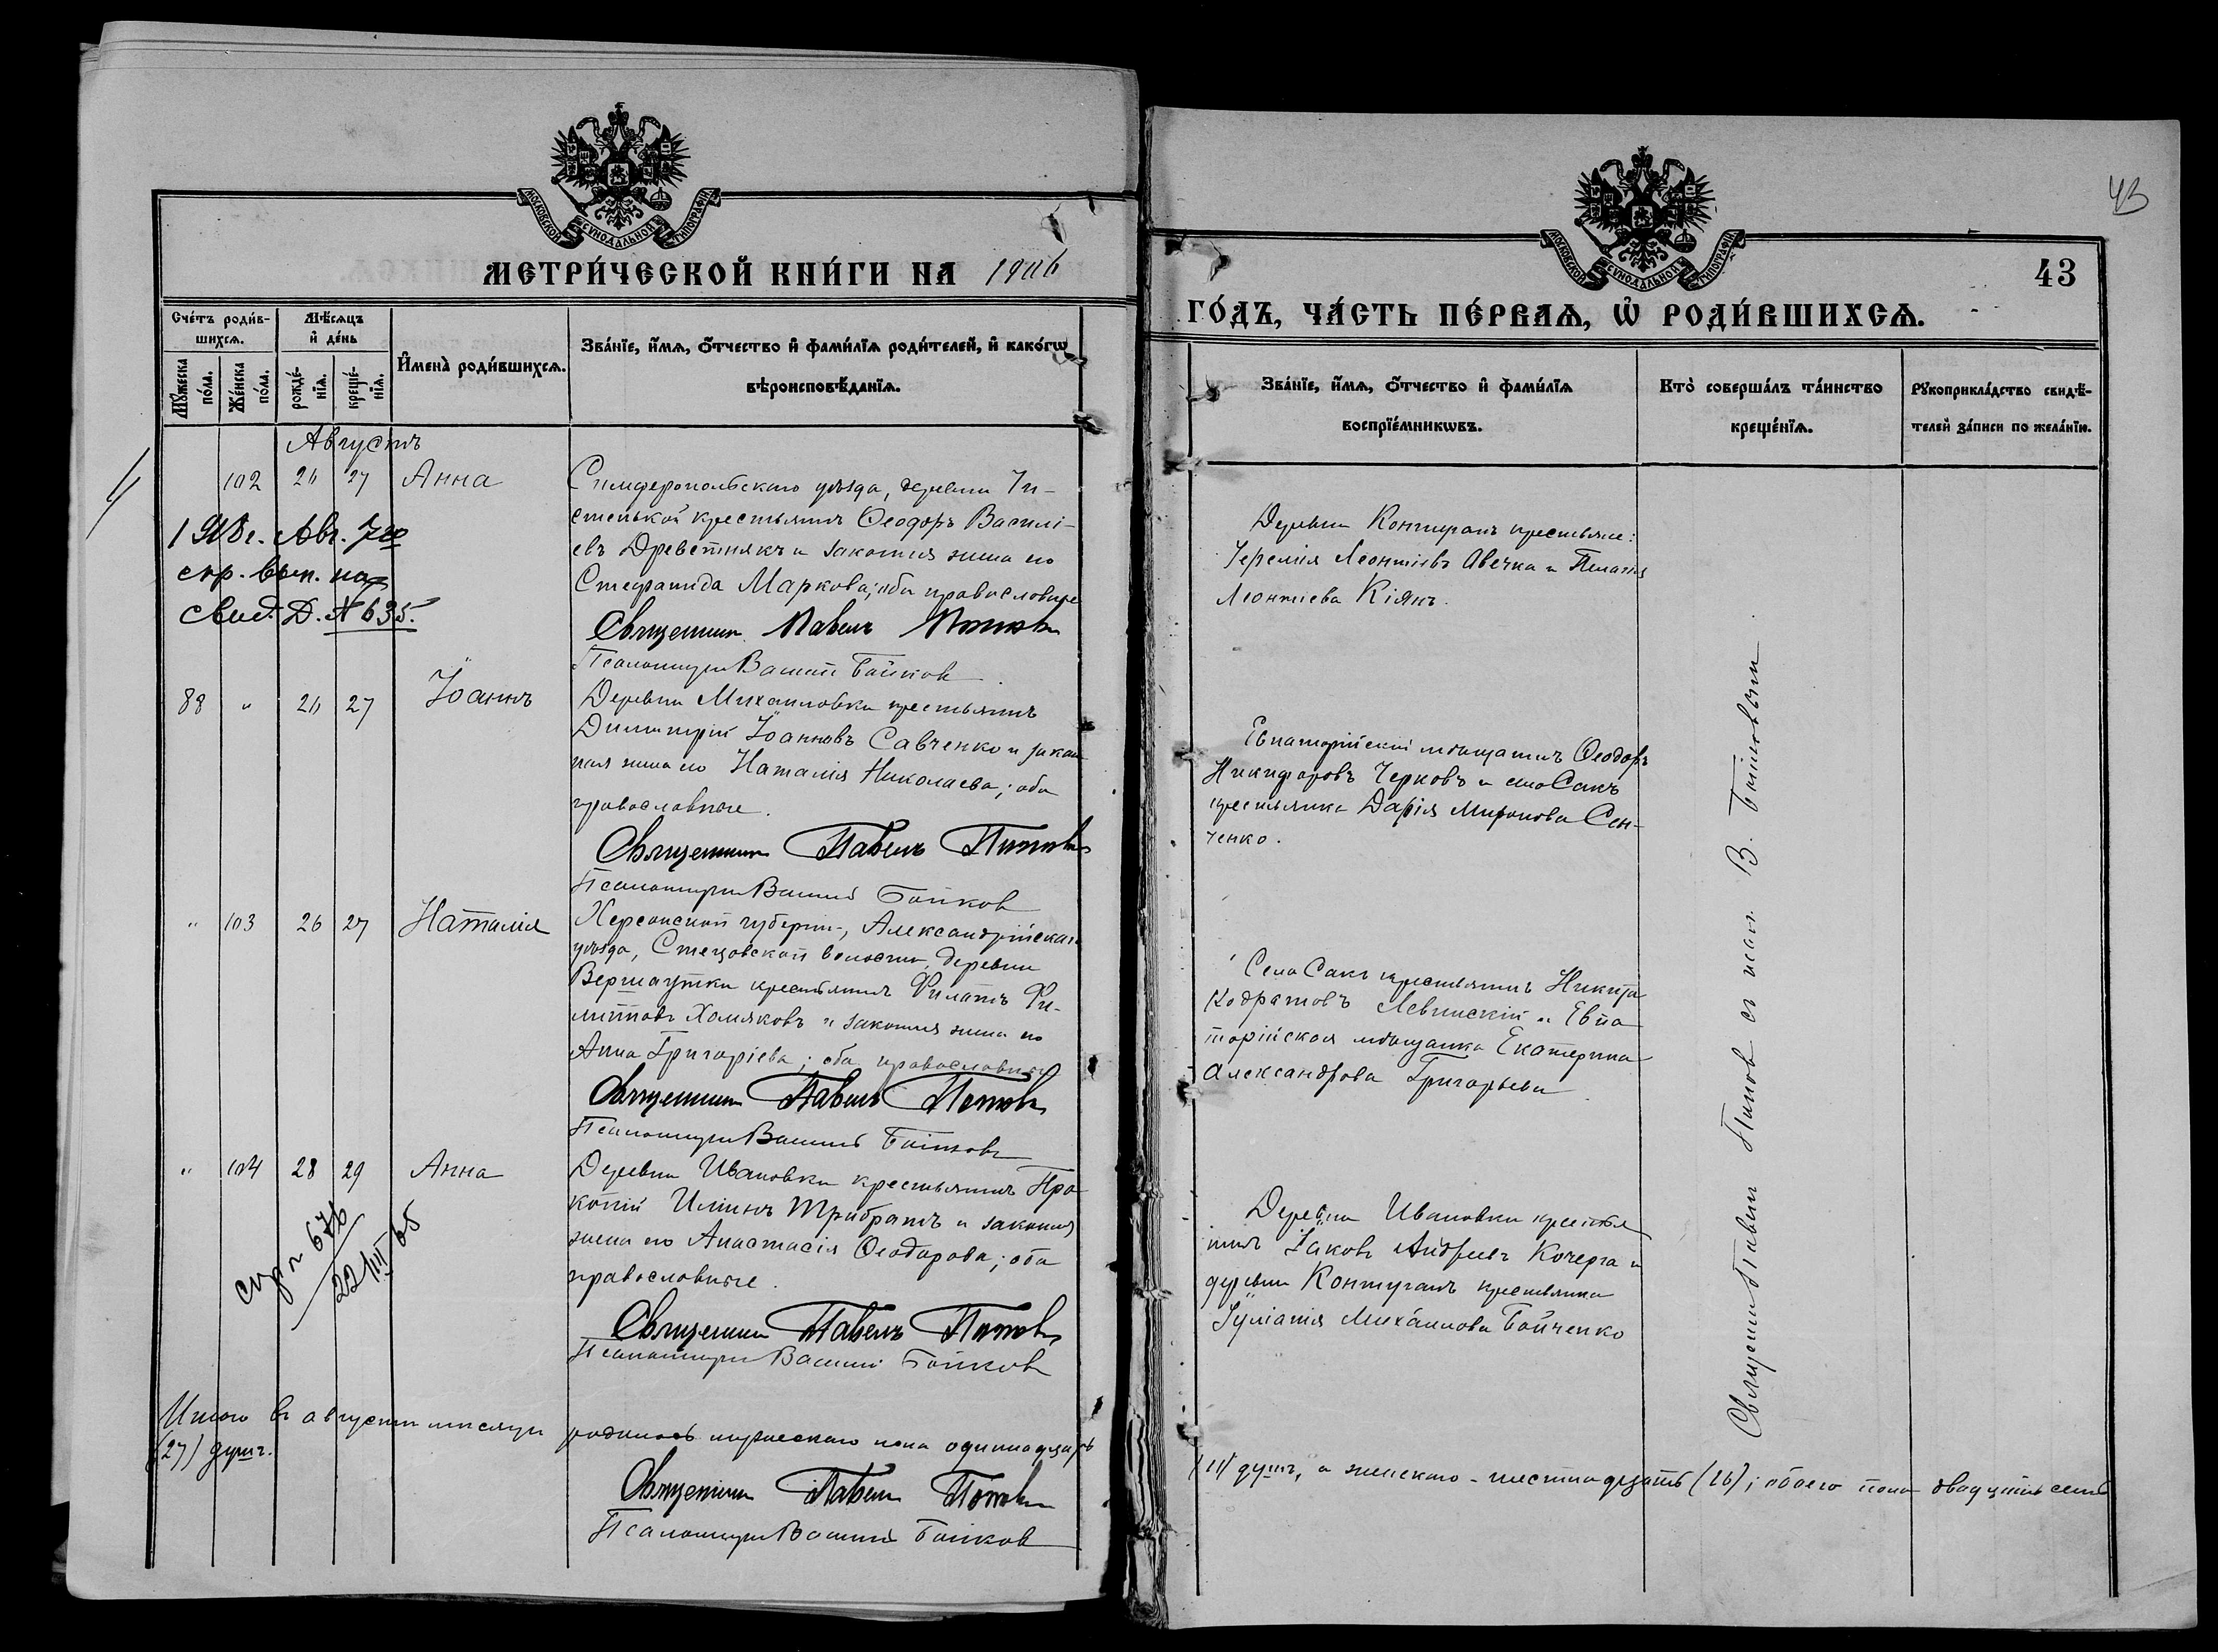 МОСКОВСКОЙ СѴНОДАЛЬНОЙ ТИПОГРАФІИ
МЕТРИ́ЧЕСКОЙ КНИ́ГИ НА 1906
Сче́тъ роди́в-
шихсѧ.
Мꙋ́жеска по́ла.
Же́нска по́ла.
Мѣ́сяцъ
и҆ де́нь
рожде́-
нїѧ.
креще́-
нїѧ.
И҆мена̀ роди́вшихсѧ.
Зва́нїе, и҆́мѧ, ѻ҆́тчество и҆ фами́лїѧ роди́телей, и҆ како́гѡ
вѣроисповѣ́данїѧ.
Августъ
102 26 27 Анна
Симферопольскаго уѣзда, деревни Чи-
стенькой крестьянинъ Ѳеодоръ Василі-
евъ Древетнякъ и законная жена его
Стефанида Маркова; оба православные
Священникъ Павелъ Поповъ
Псаломщикъ Василій Бойков
Авг. 7го
свид. Д. № 635.
4
88 " 26 27 Іоаннъ
Деревни Михайловки крестьянинъ
Димитрій Іоанновъ Савченко и закон
ная жена его Наталія Николаева; оба
православные.
Священникъ Павелъ Поповъ
Псаломщикъ Василій Бойков
" 103 26 27 Наталія
Херсонской губерніи, Александрійскаго
уѣзда, Стецовской волости, деревни
крестьянинъ Филатъ Фи-
Хомяковъ и законная жена его
Анна Григоріева; оба православные
Священникъ Павелъ Поповъ
Псаломщикъ Василій Бойковъ
" 104 28 29 Анна
Деревни Ивановки крестьянинъ Про
копій Илiинъ Трибратъ и законная
жена его Анастасія Ѳеодорова; оба
православные.
Священникъ Павелъ Поповъ
Псаломщикъ Василій Бойковъ
спр № 676
22/III 65
Итого въ августѣ мѣсяцѣ родилось мужескаго пола одиннадцать
(27) душъ.
Священникъ Павелъ Поповъ
Псаломщикъ Василій Бойков
43
МОСКОВСКОЙ СѴНОДАЛЬНОЙ ТИПОГРАФІИ
43
ГО́ДЪ, ЧА́СТЬ ПЕ́РВАѦ, Ѡ҆ РОДИ́ВШИХСѦ.
Зва́нїе, и҆́мѧ, ѻ҆́тчество и҆ фами́лїѧ
воспрїе́мникѡвъ.
Кто̀ соверша́лъ та́инство
креще́нїѧ.
Рꙋкоприкла́дство свидѣ́-
телей за́писи по жела́нїю.
Деревни Контуганъ крестьяне:
Іеремія Леонтіевъ Авечка и Пелагія
Леонтіева Кіянъ.
Евпаторійскій мѣщанинъ Ѳеодоръ
Никифоровъ Черновъ и села Сакъ
крестьянка Дарія Миронова Сен-
ченко.
Села Сакъ крестьянинъ Никита
Кодратовъ Левинскій и Евпа
торійская мѣщанка Екатерина
Александрова Григорьева
Деревни Ивановки крестья
нинъ Іаковъ Андреевъ Кочерга и
деревни Контуганъ крестьянка
Іуліанія Михайлова Бойченко
Священникъ Павелъ Попов съ псал. В. Бойковымъ
(11) душъ, а женскаго - шестнадцать (16); обоего пола двадцать семь